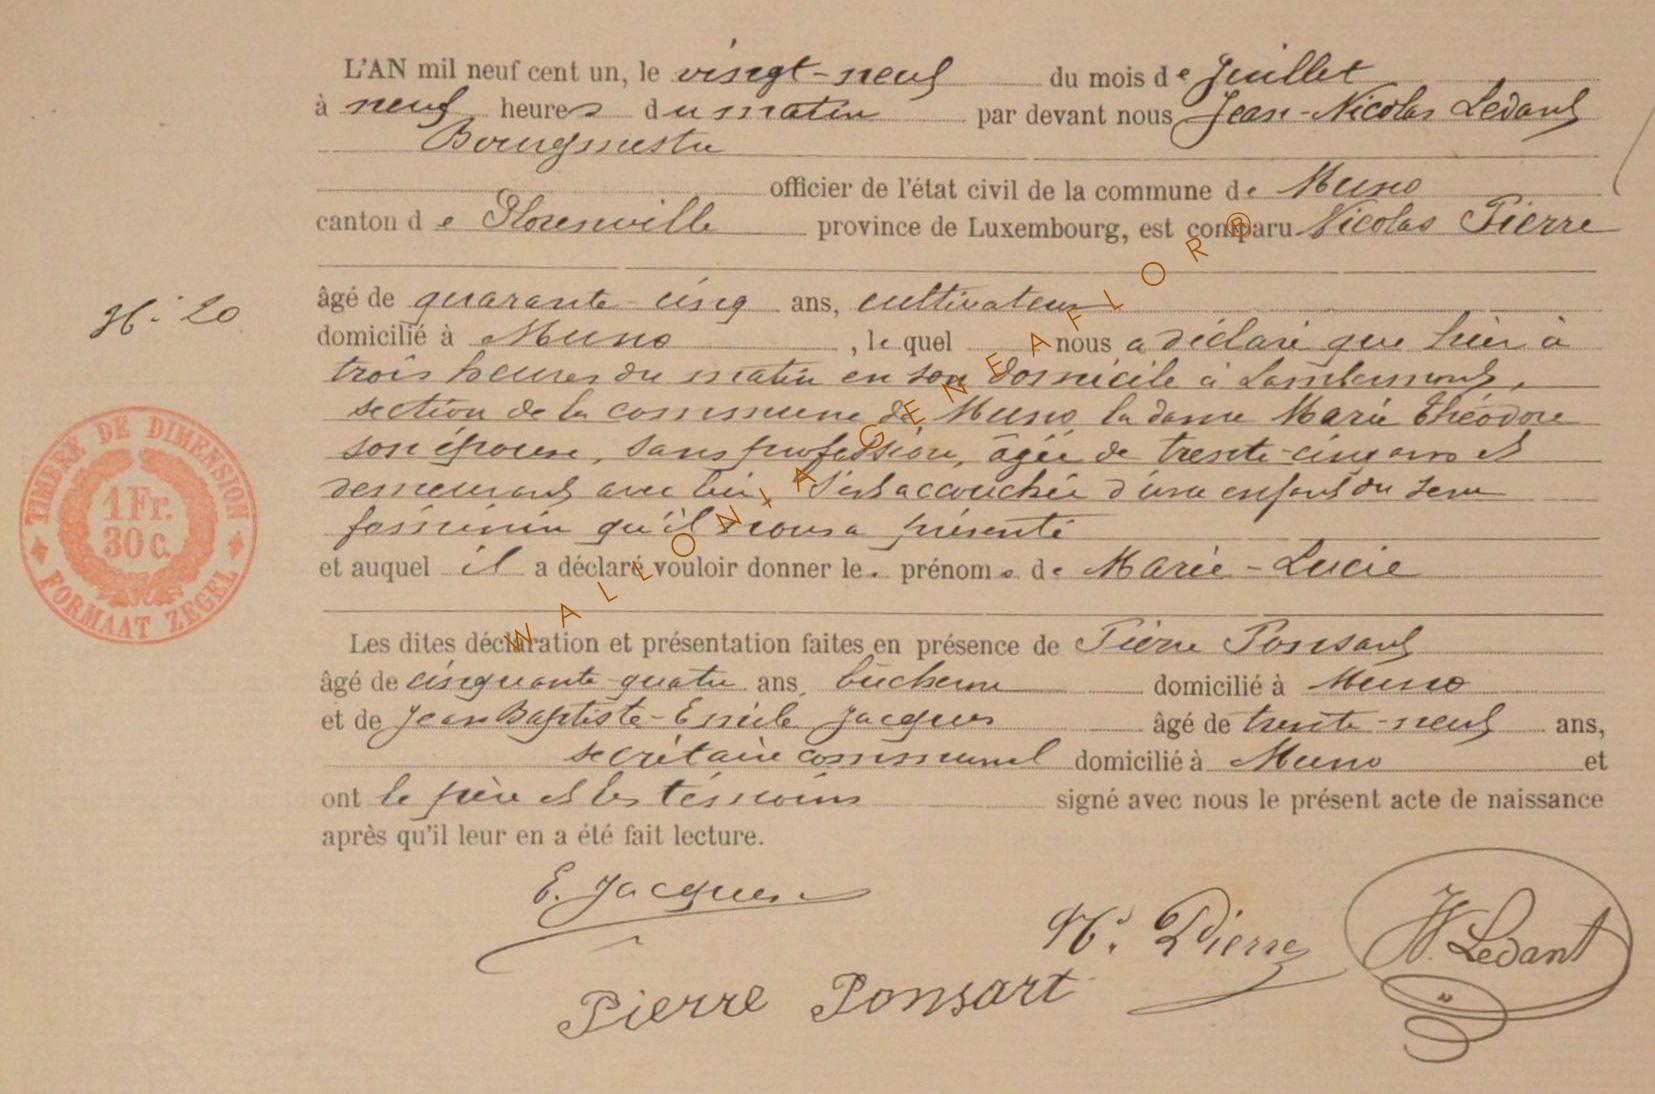 L'AN mil neuf cent un, le vingt-neuf du mois de Juillet
à neuf heures du matin par devant nous Jean-Nicolas Ledant
Bourgmestre
officier de l'état civil de la commune de Muno
canton de Florenville province de Luxembourg, est comparu Nicolas Pierre
âgé de quarante-cinq ans, cultivateur
N° 20
domicilié à Muno, lequel nous a déclaré que hier à
trois heures du matin en son domicile à Lambermont,
section de la commune de Muno la dame Marie Théodore
son épouse, sans profession, âgée de trente-cinq ans et
demeurant avec lui, s'est accouchée d'une enfant du sexe
féminin qu'il nous a présenté
et auquel il a déclaré vouloir donner les prénoms de Marie-Lucie
Les dites déclaration et présentation faites en présence de Pierre Ponsart
âgé de cinquante-quatre ans, bûcheron domicilié à Muno
et de Jean Baptiste-Emile Jacques âgé de trente-neuf ans,
secrétaire communal domicilié à Muno et
ont le père et les témoins signé avec nous le présent acte de naissance
après qu'il leur en a été fait lecture.
E. Jacques
N. Pierre
Ledant
Pierre Ponsart
TIMBRE DE DIMENSION
1 Fr.
30 C.
FORMAAT ZEGEL
WALLONIA GENEAFLOR®